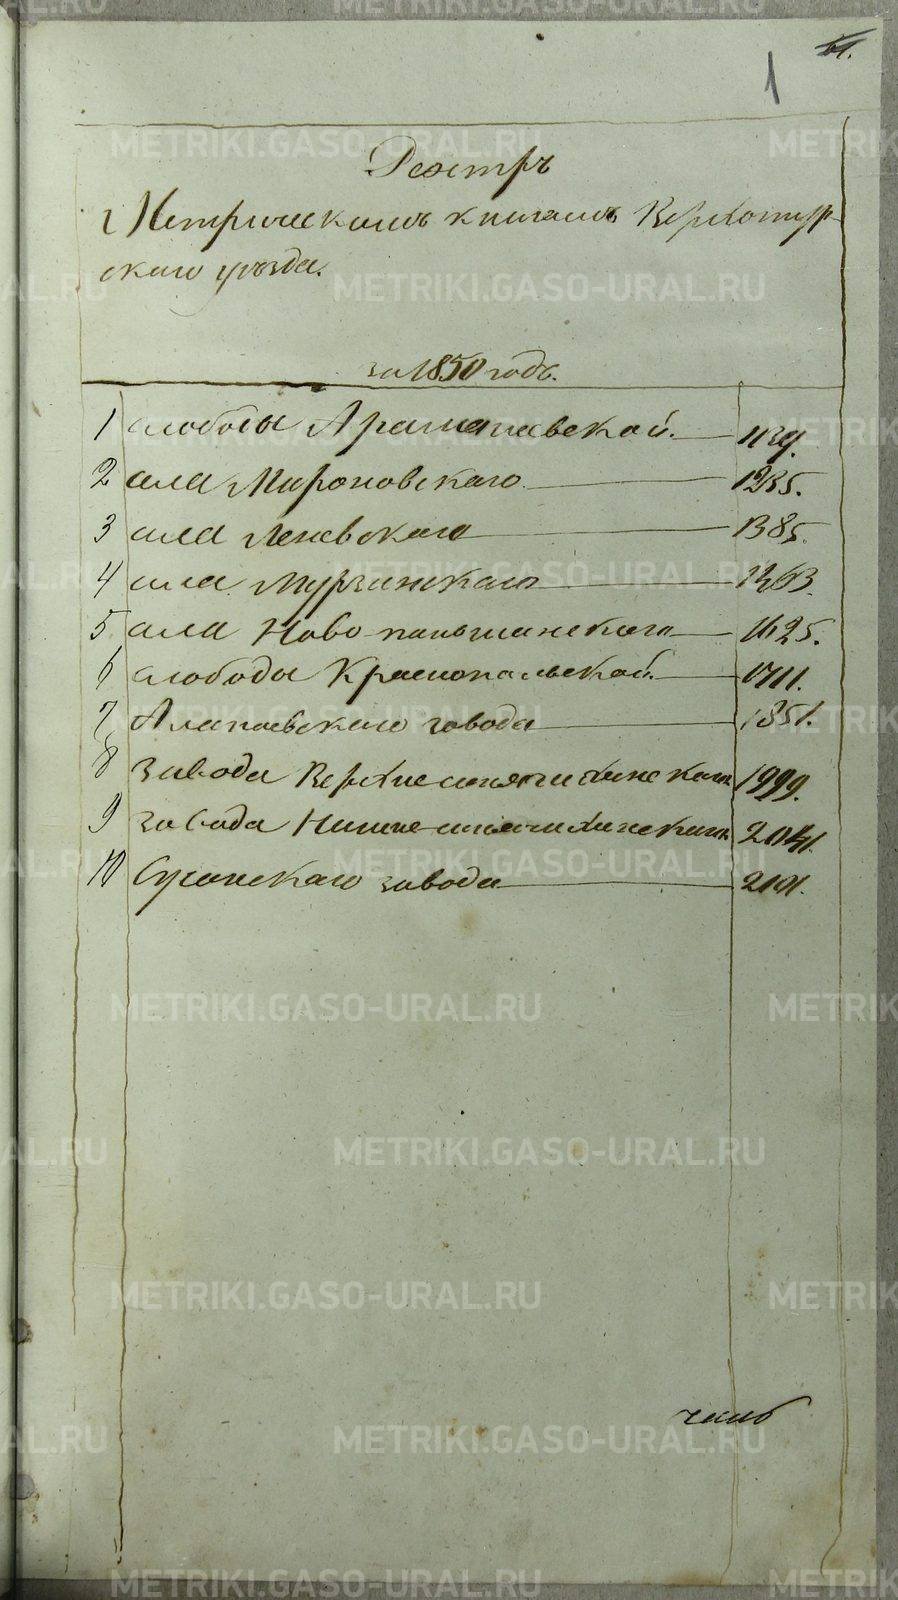 1
Реэстръ
Метрическимъ книгамъ Верхотур-
скаго уѣзда.
за 1850 годъ.
1 слободы Арамашевской. 1139.
2 села Мироновскаго 1235.
3 села Леневскаго 1385.
4 села Мурзинскаго 1463.
5 села Ново-паньшинскаго 1625.
6 слободы Краснопольской. 1711.
7 Алапаевскаго завода 1851.
8 Завода Верхнесинячихинскаго 1999.
9 завода Нижне-синячихинскаго 2041.
10 Сусанскаго завода 2101.
METRIKI.GASO-URAL.RU